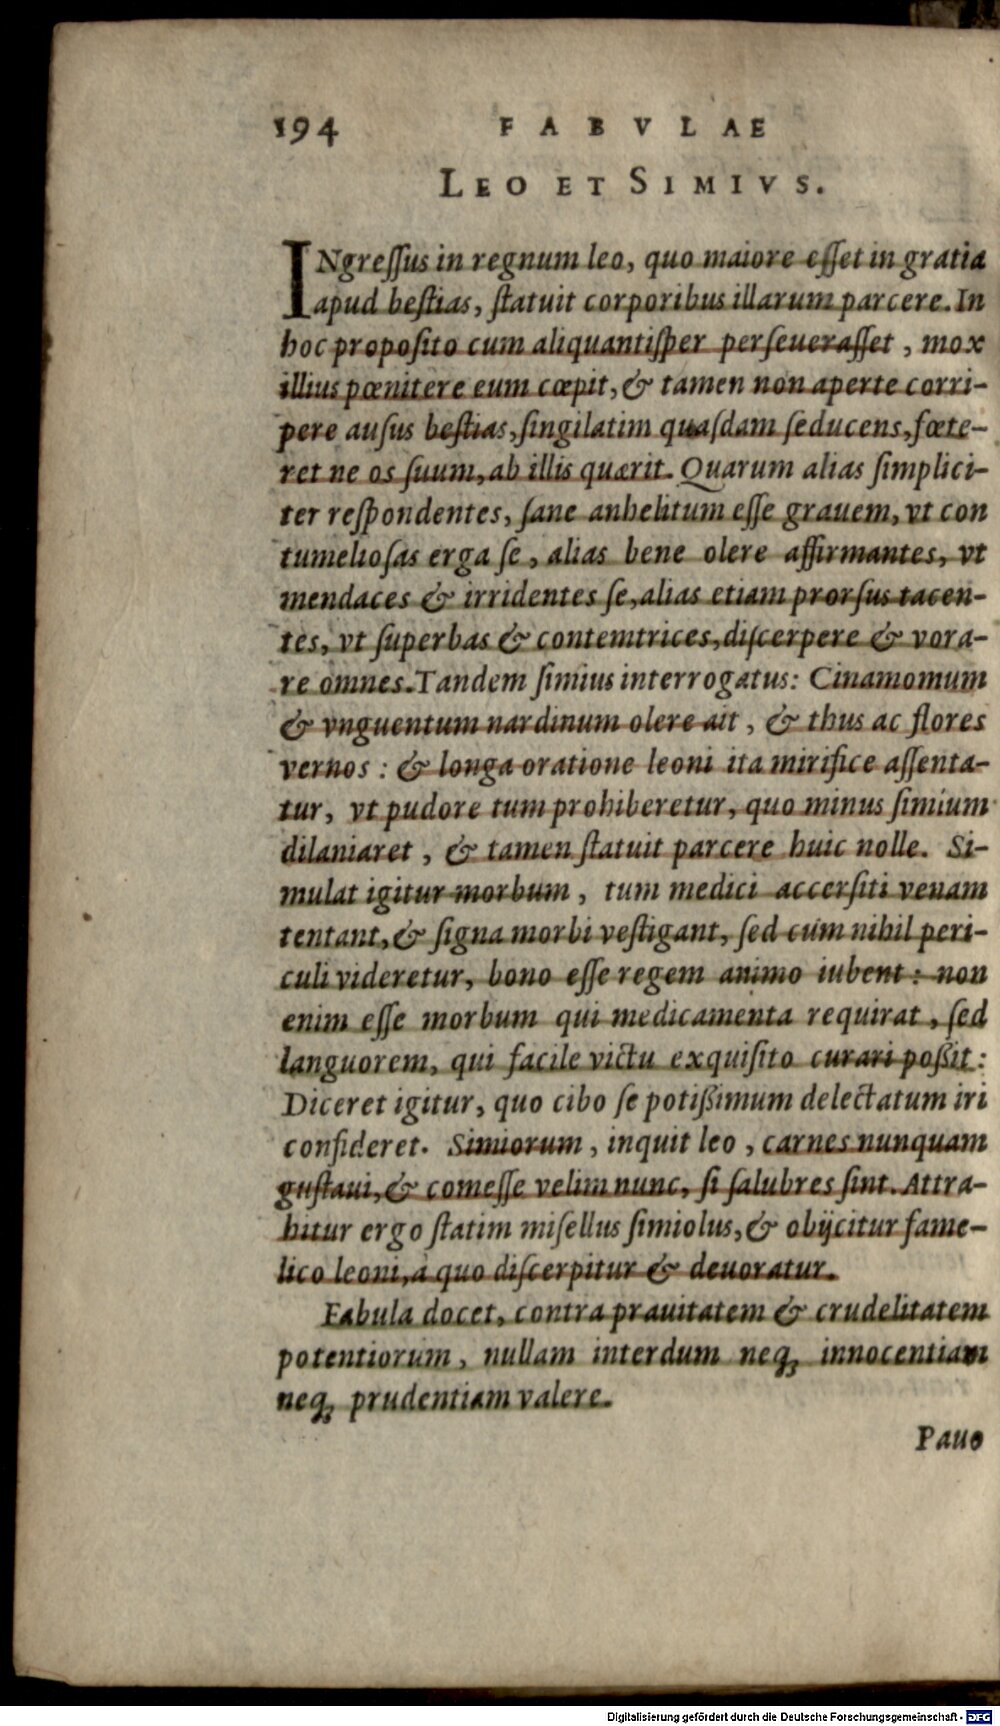 194 FABVLAE
LEO ET SIMIVS.
INgreſſus in regnum leo, quo maiore eſſet in gratia
apud beſtias, ſtatuit corporibus illarum parcere. In
hoc propoſito cum aliquantiſper perſeueraſſet, mox
illius pœnitere eum cœpit, & tamen non aperte corri-
pere auſus beſtias, ſingilatim quaſdam ſeducens, fœte-
ret ne os ſuum, ab illis quærit. Quarum alias ſimplici-
ter reſpondentes, ſane anhelitum eſſe grauem, vt con
tumelioſas erga ſe, alias bene olere affirmantes, vt
mendaces & irridentes ſe, alias etiam prorſus tacen-
tes, vt ſuperbas & contemtrices, diſcerpere & vora-
re omnes. Tandem ſimius interrogatus: Cinamomum
& vnguentum nardinum olere ait, & thus ac flores
vernos: & longa oratione leoni ita mirifice aſſenta-
tur, vt pudore tum prohiberetur, quo minus ſimium
dilaniaret, & tamen ſtatuit parcere huic nolle. Si-
mulat igitur morbum, tum medici accerſiti venam
tentant, & ſigna morbi veſtigant, ſed cùm nihil peri-
culi videretur, bono eſſe regem animo iubent: non
enim eſſe morbum qui medicamenta requirat, ſed
languorem, qui facile victu exquiſito curari poßit:
Diceret igitur, quo cibo ſe potißimum delectatum iri
confideret. Simiorum, inquit leo, carnes nunquam
guſtaui, & comeſſe velim nunc, ſi ſalubres ſint. Attra-
hitur ergo ſtatim miſellus ſimiolus, & obijcitur fame-
lico leoni, à quo diſcerpitur & deuoratur.
Fabula docet, contra prauitatem & crudelitatem
potentiorum, nullam interdum neq; innocentiam
neq; prudentiam valere.
Pauo
Digitalisierung gefördert durch die Deutsche Forschungsgemeinschaft - DFG